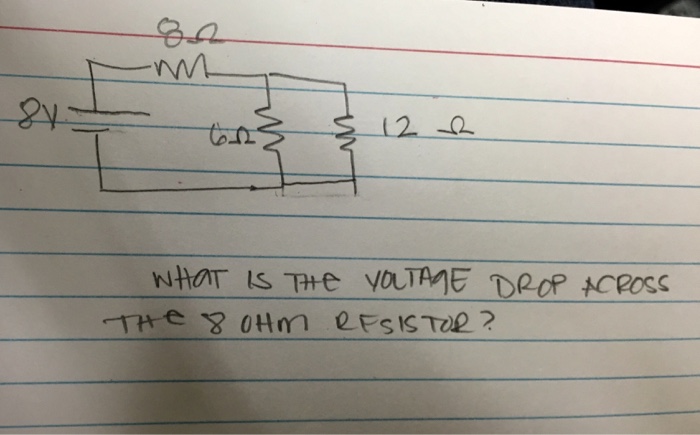 8Ω
8V
6Ω
12 Ω
WHAT IS THE VOLTAGE DROP ACROSS
THE 8 OHM RESISTOR?